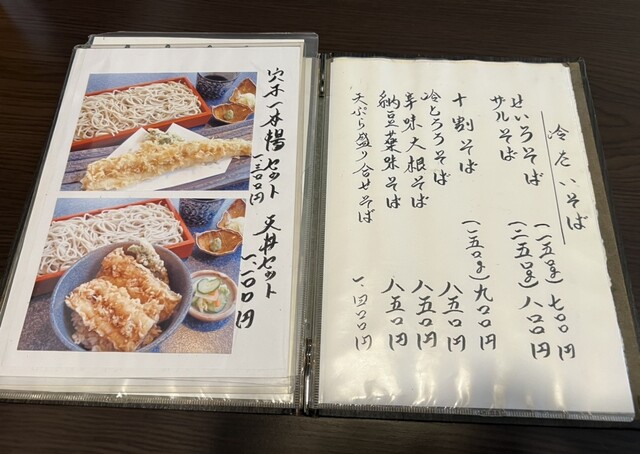 冷たいそば
せいろそば (一五〇g) 七〇〇円
ザルそば (二五〇g) 八〇〇円
十割そば (一五〇g) 九〇〇円
冷とろろそば 八五〇円
辛味大根そば 八五〇円
納豆薬味そば 八五〇円
天ぷら盛り合せそば 一、四〇〇円
穴子一本揚セット
一、三〇〇円
天丼セット
一、一〇〇円